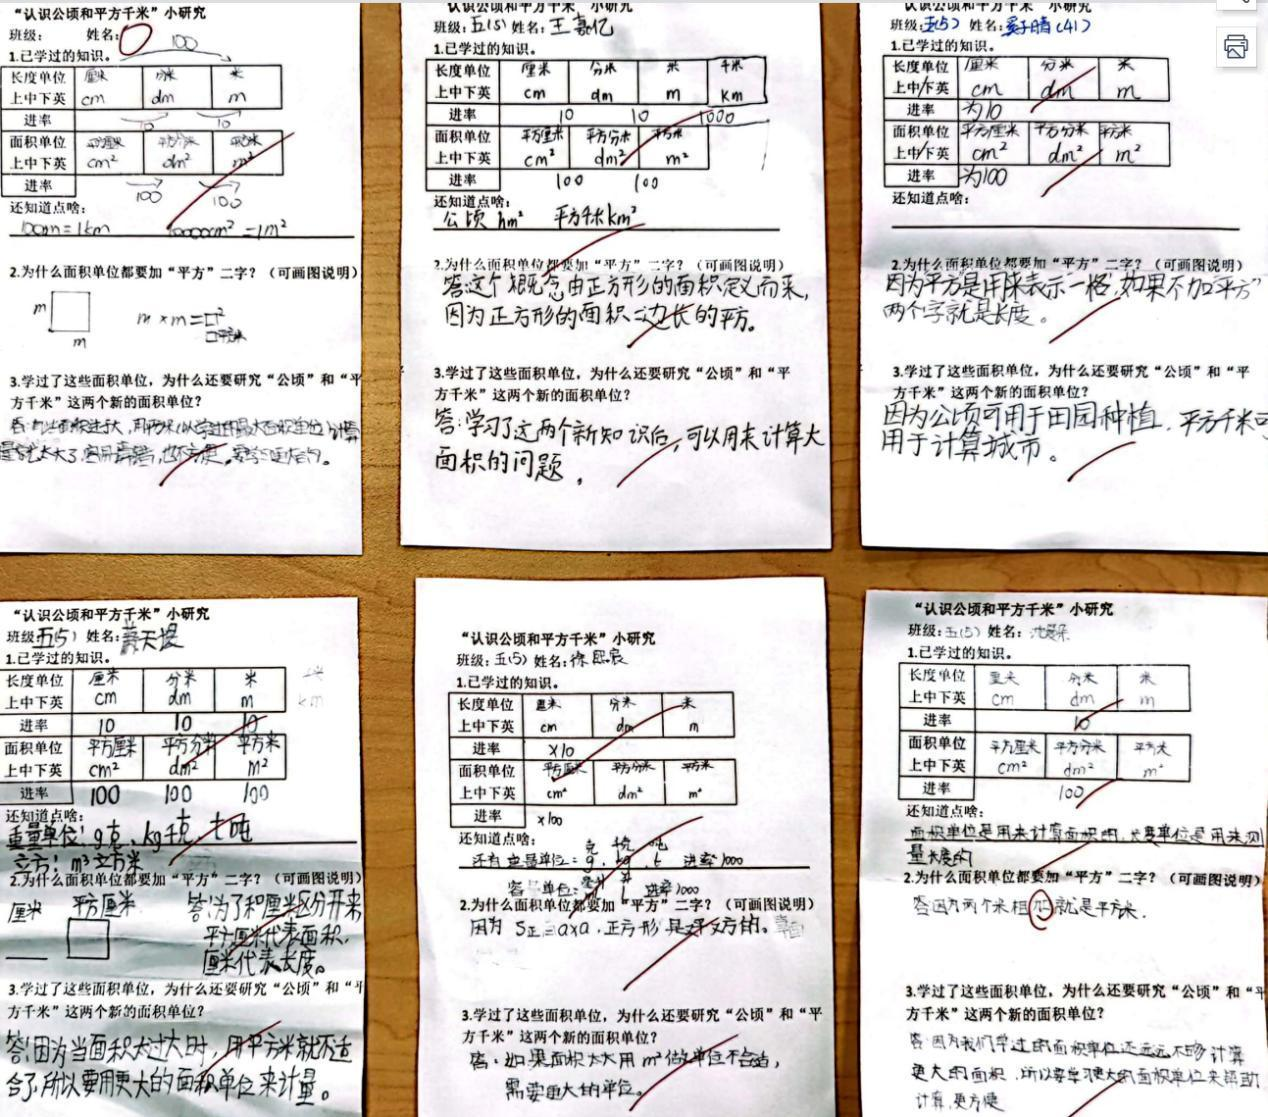 “认识公顷和平方千米”小研究
班级: 姓名:
100
1.已学过的知识。
长度单位 厘米 分米 米
上中下英 cm dm m
进率 10 10
面积单位 平方厘米 平方分米 平方米
上中下英 cm² dm² m²
进率 100 100
还知道点啥:
=1km 10000cm²=1m²
2.为什么面积单位都要加“平方”二字？（可画图说明）
m m×m=□²
m
3.学过了这些面积单位，为什么还要研究“公顷”和“平
方千米”这两个新的面积单位？
“认识公顷和平方千米”小研究
班级:五(5) 姓名:王嘉亿
1.已学过的知识。
长度单位 厘米 分米 米 千米
上中下英 cm dm m km
进率 10 10 1000
面积单位 平方厘米 平方分米 平方米
上中下英 cm² dm² m²
进率 100 100
还知道点啥:
公顷 hm² 平方千米km²
2.为什么面积单位都要加“平方”二字？（可画图说明）
答:这个概念由正方形的面积定义而来，
因为正方形的面积=边长的平方。
3.学过了这些面积单位，为什么还要研究“公顷”和“平
方千米”这两个新的面积单位？
答:学习了这两个新知识后，可以用来计算大
面积的问题。
“认识公顷和平方千米”小研究
班级:五(5) 姓名: 晴(41)
1.已学过的知识。
长度单位 厘米 分米 米
上中下英 cm dm m
进率 为10
面积单位 平方厘米 平方分米 平方米
上中下英 cm² dm² m²
进率 为100
还知道点啥:
2.为什么面积单位都要加“平方”二字？（可画图说明）
因为平方是用来表示一格,如果不加“平方”
两个字就是长度。
3.学过了这些面积单位，为什么还要研究“公顷”和“平
方千米”这两个新的面积单位？
因为公顷可用于田园种植，平方千米可
用于计算城市。
“认识公顷和平方千米”小研究
班级五(5) 姓名: 天
1.已学过的知识。
长度单位 厘米 分米 米 千米
上中下英 cm dm m km
进率 10 10 10
面积单位 平方厘米 平方分米 平方米
上中下英 cm² dm² m²
进率 100 100 100
还知道点啥:
重量单位:g克、kg千克 t吨
立方:m³立方米
2.为什么面积单位都要加“平方”二字？（可画图说明）
厘米 平方厘米 答:为了和厘米区分开来
平方厘米代表面积，
厘米代表长度。
3.学过了这些面积单位，为什么还要研究“公顷”和“平
方千米”这两个新的面积单位？
答:因为当面积太过大时，用平方米就不适
合了,所以要用更大的面积单位来计量。
“认识公顷和平方千米”小研究
班级:五(5) 姓名:徐熙宸
1.已学过的知识。
长度单位 厘米 分米 米
上中下英 cm dm m
进率 ×10
面积单位 平方厘米 平方分米 平方米
上中下英 cm² dm² m²
进率 ×100
还知道点啥: 克 千克 吨
还有重量单位:g、kg、t 进率1000
容量单位: 毫升 升 进率1000
2.为什么面积单位都要加“平方”二字？（可画图说明）
因为 S正=a×a，正方形
3.学过了这些面积单位，为什么还要研究“公顷”和“平
方千米”这两个新的面积单位？
答:如果面积太大用m²做单位不合适，
需要更大的单位。
“认识公顷和平方千米”小研究
班级:五(5) 姓名:沈
1.已学过的知识。
长度单位 厘米 分米 米
上中下英 cm dm m
进率 10
面积单位 平方厘米 平方分米 平方米
上中下英 cm² dm² m²
进率 100
还知道点啥:
面积单位是用来计算面积的,长度单位是用来测
量长度的
2.为什么面积单位都要加“平方”二字？（可画图说明）
答:因为两个米相 就是平方米.
3.学过了这些面积单位，为什么还要研究“公顷”和“平
方千米”这两个新的面积单位？
答:因为我们学过的面积单位还远远不够计算
更大的面积,所以要学习更大的面积单位来帮助
计算,更方便